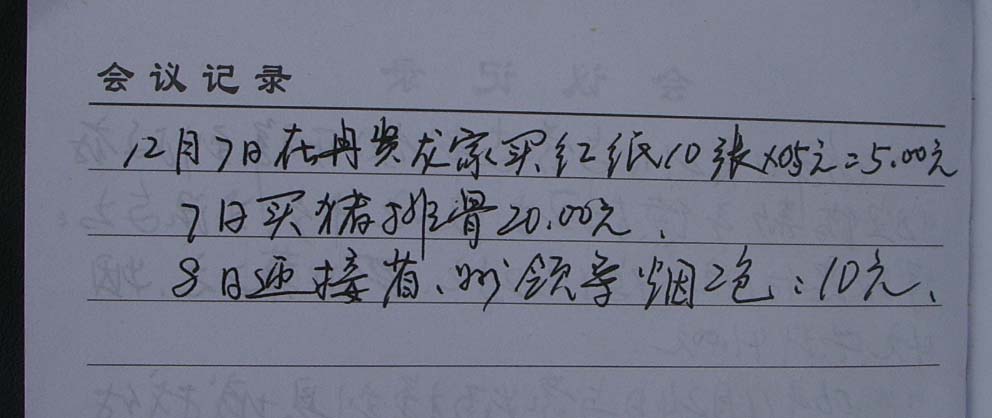 会议记录
12月7日在冉贤龙家买红纸10张×05元=5.00元
7日买猪排骨20.00元、
8日迎接省、州领导烟2包:10元、